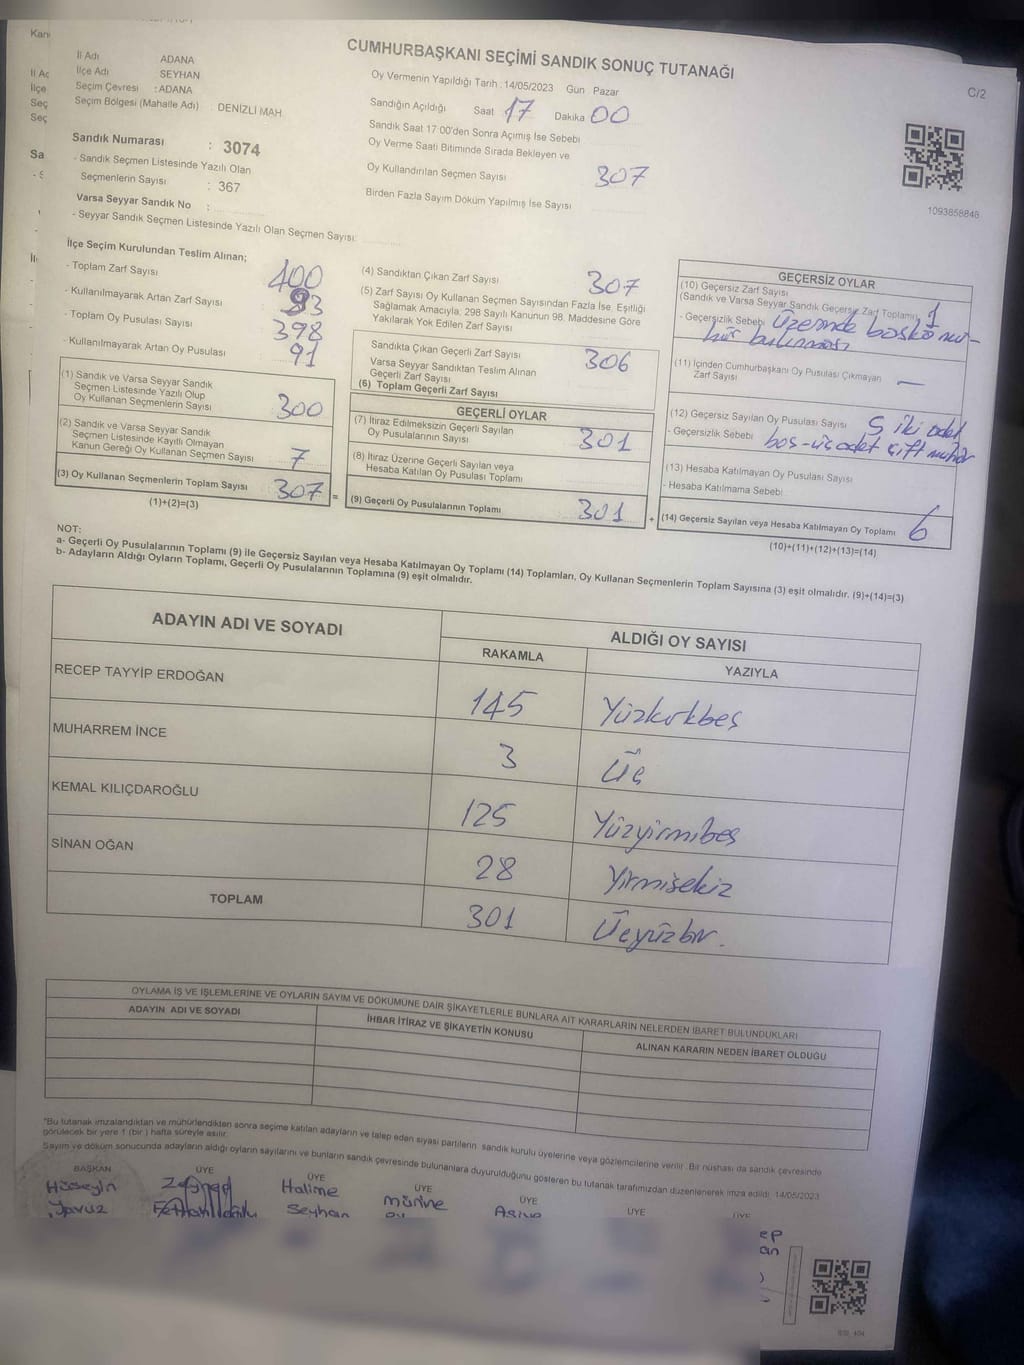 CUMHURBAŞKANI SEÇİMİ SANDIK SONUÇ TUTANAĞI
C/2
İl Adı ADANA
İlçe Adı SEYHAN
Seçim Çevresi : ADANA
Seçim Bölgesi (Mahalle Adı) : DENİZLİ MAH.
Sandık Numarası : 3074
- Sandık Seçmen Listesinde Yazılı Olan
Seçmenlerin Sayısı : 367
Varsa Seyyar Sandık No :
- Seyyar Sandık Seçmen Listesinde Yazılı Olan Seçmen Sayısı:
Oy Vermenin Yapıldığı Tarih : 14/05/2023 Gün Pazar
Sandığın Açıldığı Saat 17 Dakika 00
Sandık Saat 17 00'den Sonra Açımış İse Sebebi
Oy Verme Saati Bitiminde Sırada Bekleyen ve
Oy Kullandırılan Seçmen Sayısı 307
Birden Fazla Sayım Döküm Yapılmış İse Sayısı
1093858848
İlçe Seçim Kurulundan Teslim Alınan;
- Toplam Zarf Sayısı 400
- Kullanılmayarak Artan Zarf Sayısı 93
- Toplam Oy Pusulası Sayısı 398
- Kullanılmayarak Artan Oy Pusulası 91
(1) Sandık ve Varsa Seyyar Sandık
Seçmen Listesinde Yazılı Olup
Oy Kullanan Seçmenlerin Sayısı 300
(2) Sandık ve Varsa Seyyar Sandık
Seçmen Listesinde Kayıtlı Olmayan
Kanun Gereği Oy Kullanan Seçmen Sayısı 7
(3) Oy Kullanan Seçmenlerin Toplam Sayısı 307 =
(1)+(2)=(3)
(4) Sandıktan Çıkan Zarf Sayısı 307
(5) Zarf Sayısı Oy Kullanan Seçmen Sayısından Fazla İse, Eşitliği
Sağlamak Amacıyla, 298 Sayılı Kanunun 98. Maddesine Göre
Yakılarak Yok Edilen Zarf Sayısı
Sandıkta Çıkan Geçerli Zarf Sayısı 306
Varsa Seyyar Sandıktan Teslim Alınan
Geçerli Zarf Sayısı
(6) Toplam Geçerli Zarf Sayısı
GEÇERLİ OYLAR
(7) İtiraz Edilmeksizin Geçerli Sayılan
Oy Pusulalarının Sayısı 301
(8) İtiraz Üzerine Geçerli Sayılan veya
Hesaba Katılan Oy Pusulası Toplamı
(9) Geçerli Oy Pusulalarının Toplamı 301 +
GEÇERSİZ OYLAR
(10) Geçersiz Zarf Sayısı
(Sandık ve Varsa Seyyar Sandık Geçersiz Zarf Toplamı) 1
- Geçersizlik Sebebi üzerinde baskı mü-
hür bulunması
(11) İçinden Cumhurbaşkanı Oy Pusulası Çıkmayan
Zarf Sayısı —
(12) Geçersiz Sayılan Oy Pusulası Sayısı 5 iki adet
- Geçersizlik Sebebi boş-üç adet çift mühür
(13) Hesaba Katılmayan Oy Pusulası Sayısı
- Hesaba Katılmama Sebebi
(14) Geçersiz Sayılan veya Hesaba Katılmayan Oy Toplamı 6
(10)+(11)+(12)+(13)=(14)
NOT:
a- Geçerli Oy Pusulalarının Toplamı (9) ile Geçersiz Sayılan veya Hesaba Katılmayan Oy Toplamı (14) Toplamları, Oy Kullanan Seçmenlerin Toplam Sayısına (3) eşit olmalıdır. (9)+(14)=(3)
b- Adayların Aldığı Oyların Toplamı, Geçerli Oy Pusulalarının Toplamına (9) eşit olmalıdır.
ADAYIN ADI VE SOYADI ALDIĞI OY SAYISI
RAKAMLA YAZIYLA
RECEP TAYYİP ERDOĞAN 145 Yüzkırkbeş
MUHARREM İNCE 3 Üç
KEMAL KILIÇDAROĞLU 125 Yüzyirmibeş
SİNAN OĞAN 28 Yirmisekiz
TOPLAM 301 Üçyüzbir.
OYLAMA İŞ VE İŞLEMLERİNE VE OYLARIN SAYIM VE DÖKÜMÜNE DAİR ŞİKAYETLERLE BUNLARA AİT KARARLARIN NELERDEN İBARET BULUNDUKLARI
ADAYIN ADI VE SOYADI İHBAR İTİRAZ VE ŞİKAYETİN KONUSU ALINAN KARARIN NEDEN İBARET OLDUĞU
*Bu tutanak imzalandıktan ve mühürlendikten sonra seçime katılan adayların ve talep eden siyasi partilerin sandık kurulu üyelerine veya gözlemcilerine verilir. Bir nüshası da sandık çevresinde
görülecek bir yere 1 (bir) hafta süreyle asılır.
Sayım ve döküm sonucunda adayların aldığı oyların sayılarını ve bunların sandık çevresinde bulunanlara duyurulduğunu gösteren bu tutanak tarafımızdan düzenlenerek imza edildi. 14/05/2023
BAŞKAN ÜYE ÜYE ÜYE ÜYE ÜYE ÜYE
Hüseyin Zeynep Halime Mürine Asiye
Yavuz Seyhan